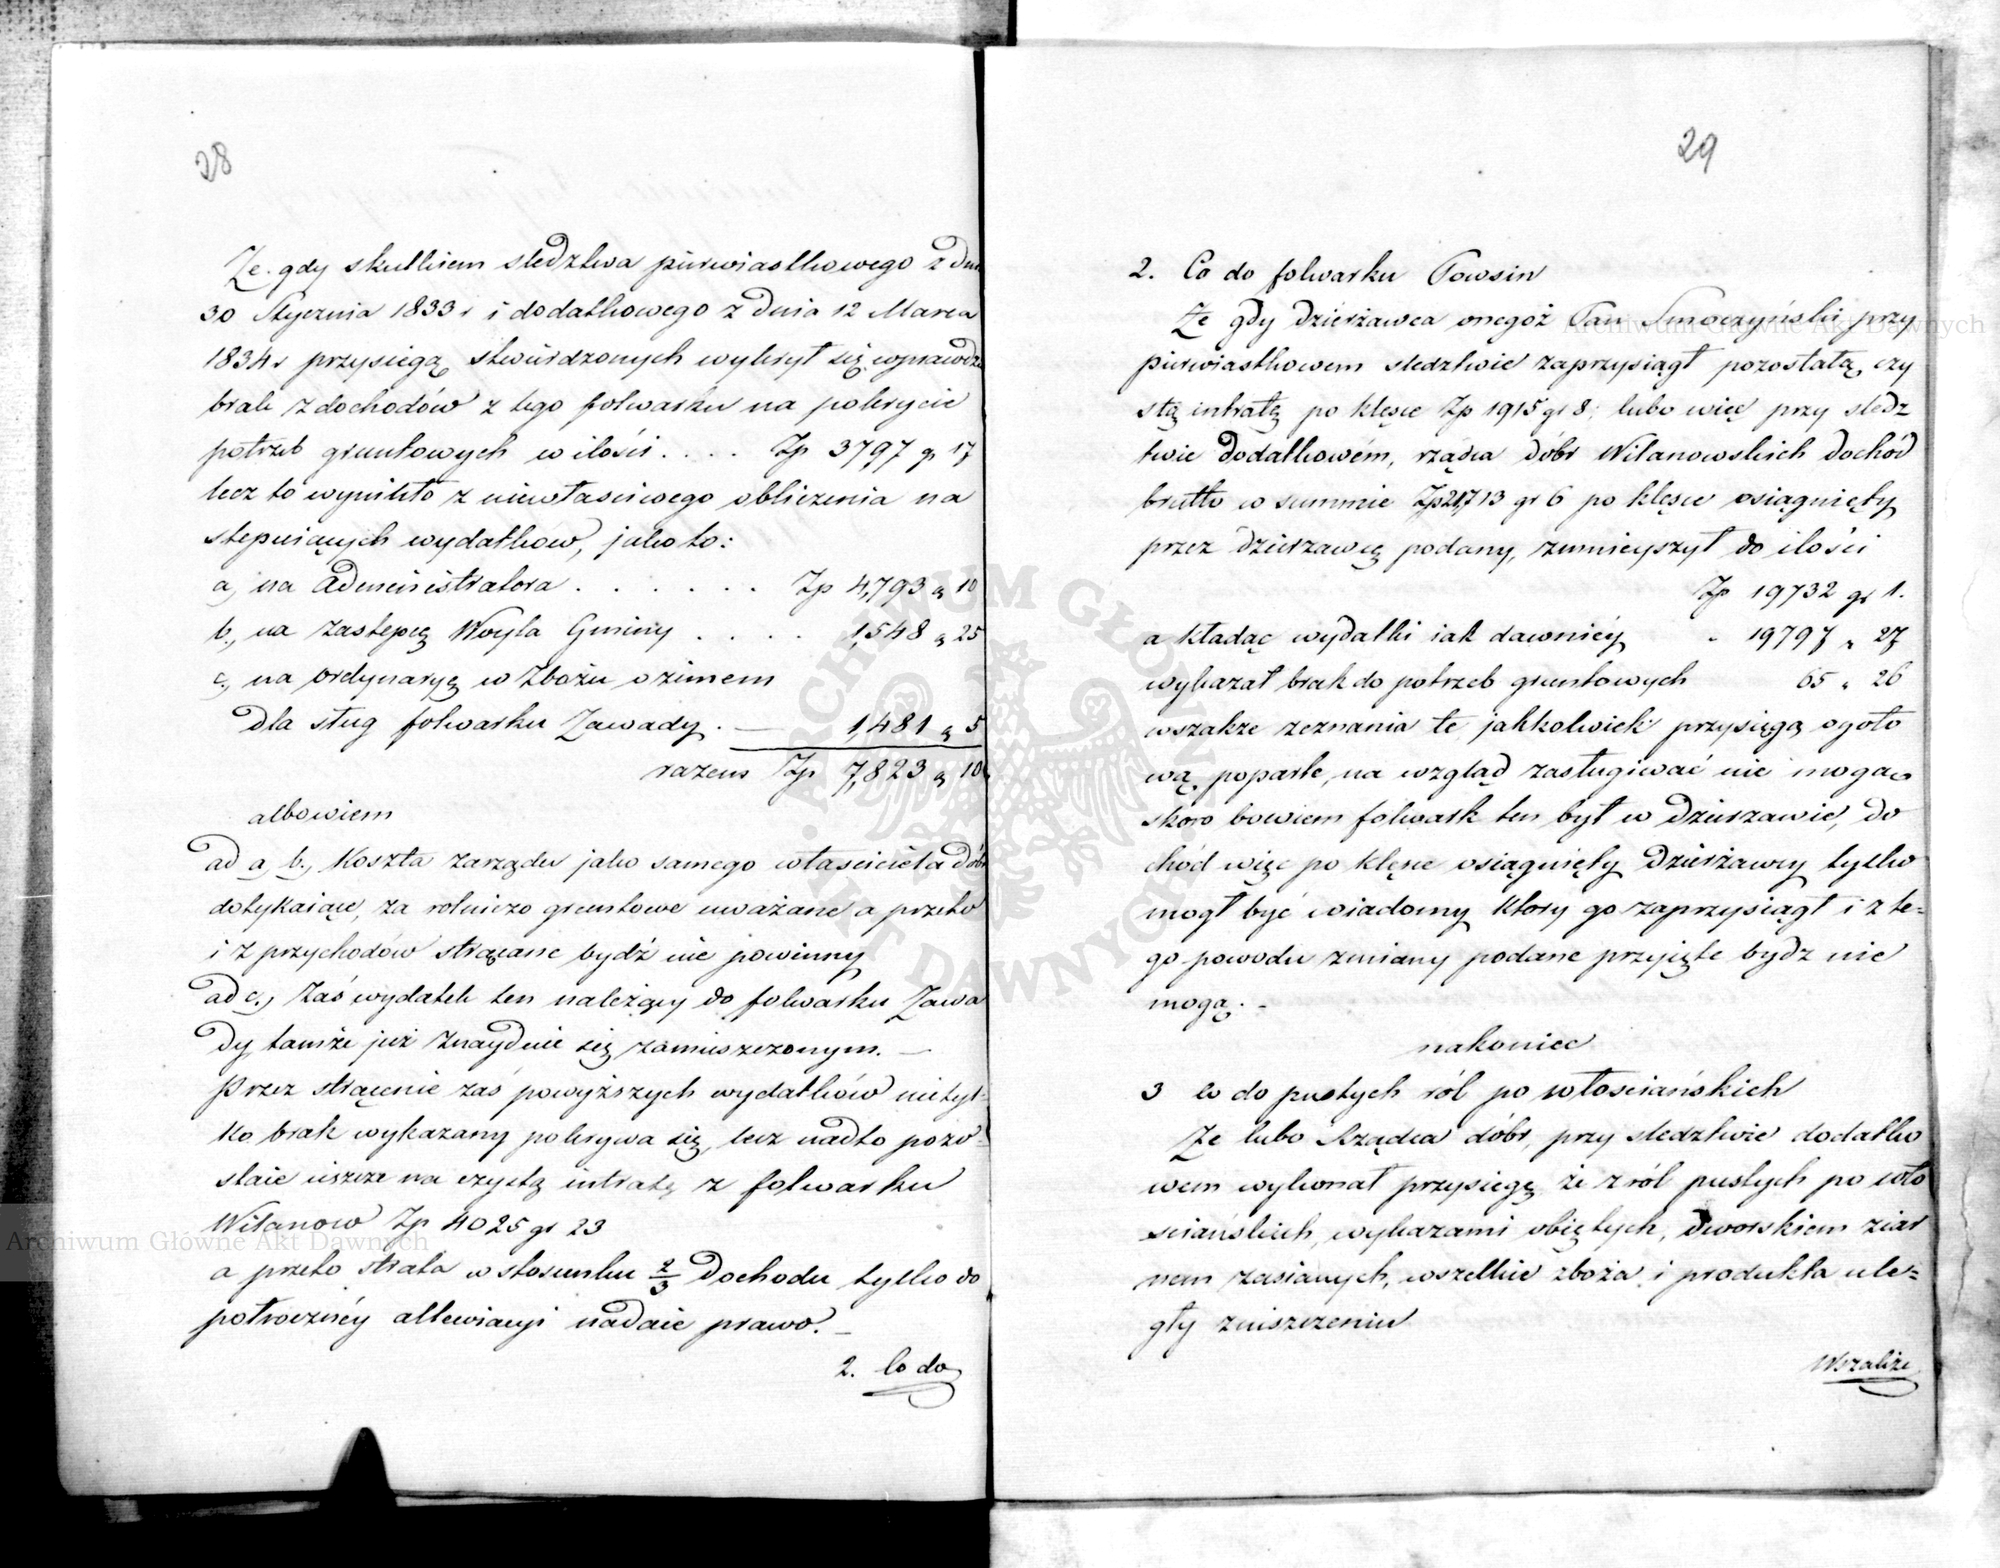 28
Że gdy skutkiem sledztwa pierwiastkowego z dnia
30 Stycznia 1833 r i dodatkowego z dnia 12 Marca
1834 r przysięgą stwierdzonych wykrył się wprawdzie
brak z dochodów z tego folwarku na pokrycie
potrzeb gruntowych w ilości . . . . Zp 3797 gr 17
lecz to wynikło z niewłaściwego obliczenia na
stępuiących wydatków, jako to:
a, na Administratora . . . . . . Zp 4,793 „ 10
b, na zastępcę Woyta Gminy . . . . 1,548 „ 25
c, na ordynaryę w Zbożu ozimem
dla sług folwarku Zawady . — 1,481 „ 5
razem Zp 7,823 „ 10
albowiem
ad a, b, Koszta zarządu jako samego właściciela dóbr
dotykaiące, za rolniczo gruntowe uważane, a przeto
i z przychodów strącane bydź nie powinny
ad c, Zaś wydatek ten należący do folwarku Zawa
dy tamże już znayduie się zamieszczonym. —
Przez strącenie zaś powyższych wydatków nietyl-
ko brak wykazany pokrywa się, lecz nadto pozo-
staie ieszcze na czystą intratę z folwarku
Wilanow Zp 4025 gr 23
a przeto strata w stosunku 2/3 Dochodu tylko do
półroczney allewiacyi nadaie prawo. —
2. Co do
29
2. Co do folwarku Powsin
Że gdy dzierżawca onegoż Pan Smoczyński przy
pierwiastkowem sledztwie zaprzysiągł pozostałą czy
stą intratę po klęsce Zp 1915 gr 8; lubo więc przy sledz
twie dodatkowém, rządca dóbr Wilanowskich dochód
brutto w summie Zp 21,713 gr 6 po klęsce osiągnięty
przez dzierzawcę podany, zmnieyszył do ilości
Zp 19732 gr 1.
a kładąc wydatki iak dawniéy „ 19797 „ 27
wykazał brak do potrzeb gruntowych 65 „ 26
wszakże zeznania te jakkolwiek przysięgą ogóło
wą poparte, na wzgląd zasługiwać nie mogą
skoro bowiem folwark ten był w Dzierzawie, do
chód więc po klęsce osiągnięty Dzierżawcy tylko
mógł być wiadomy który go zaprzysiągł i z te=
go powodu zmiany podane przyięte bydz nie
mogą. -
nakoniec
3 Co do pustych ról po włościańskich
Że lubo Rządca dóbr, przy sledztwie dodatko
wem wykonał przysięgę że z ról pustych po wło
sciańskich, wykazami obiętych, dworskiem ziar
nem zasianych, wszelkie zboża i produkta ule=
gły zniszczeniu
Wszakże
Archiwum Główne Akt Dawnych
Archiwum Główne Akt Dawnych
ARCHIWUM GŁÓWNE AKT DAWNYCH